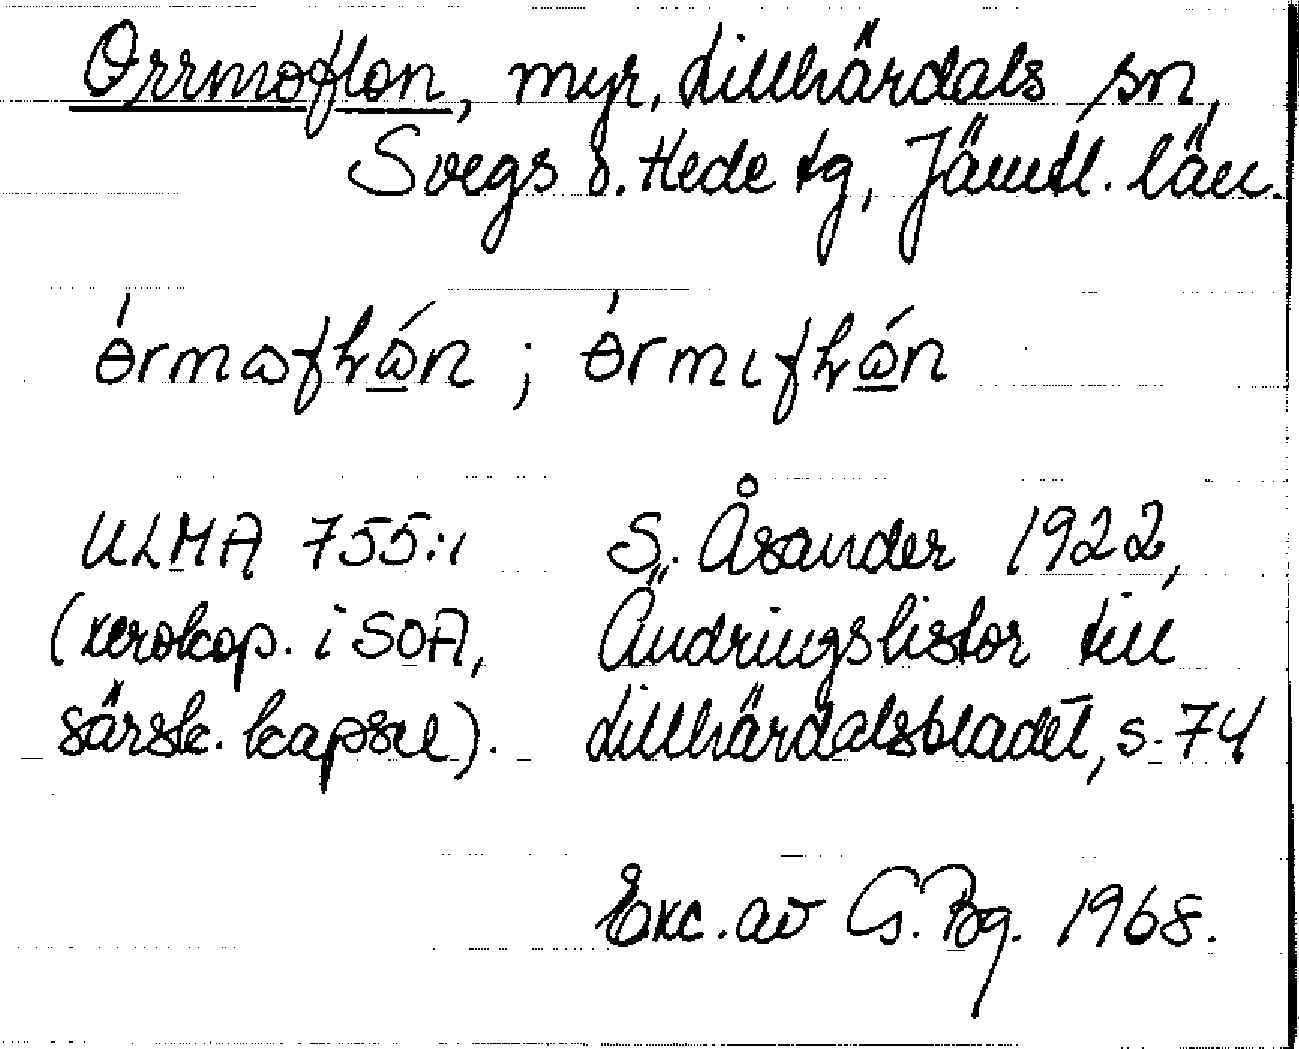 Orrmoflon, myr, Lillhärdals sn,
Svegs o. Hede tg, Jämtl. län.
ULMA 755:1 S. Åsander 1922,
(xerokop. i SOA, Ändringslistor till
särsk. kapsel). Lillhärdalsbladet, s. 74
Exc. av G. Bg. 1968.